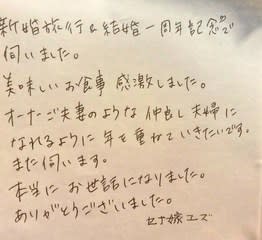 新婚旅行&結婚一周年記念で
伺いました。
美味しいお食事 感激しました。
オーナーご夫妻のような 仲良し夫婦に
なれるように 年を重ねていきたいです。
また伺います。
本当に お世話になりました。
ありがとうございました。
嫁ユズ